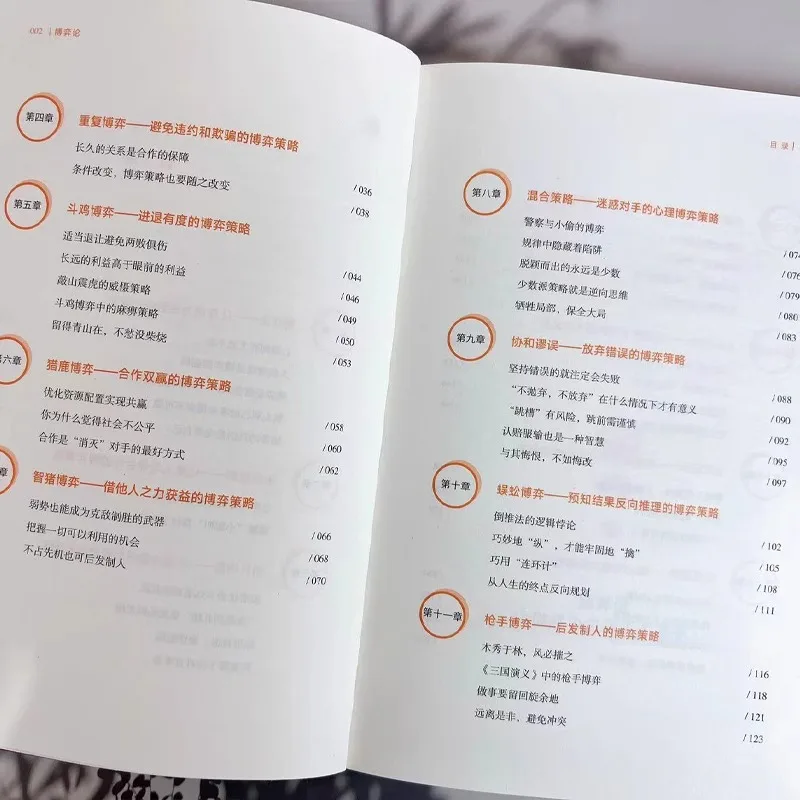 002 | 博弈论
第四章 重复博弈——避免违约和欺骗的博弈策略
长久的关系是合作的保障 / 036
条件改变，博弈策略也要随之改变 / 038
第五章 斗鸡博弈——进退有度的博弈策略
适当退让避免两败俱伤 / 044
长远的利益高于眼前的利益 / 046
敲山震虎的威慑策略 / 049
斗鸡博弈中的麻痹策略 / 050
留得青山在，不愁没柴烧 / 053
六章 猎鹿博弈——合作双赢的博弈策略
优化资源配置实现共赢 / 058
你为什么觉得社会不公平 / 060
合作是“消灭”对手的最好方式 / 062
章 智猪博弈——借他人之力获益的博弈策略
弱势也能成为克敌制胜的武器 / 066
把握一切可以利用的机会 / 068
不占先机也可后发制人 / 070
目录 |
第八章 混合策略——迷惑对手的心理博弈策略
警察与小偷的博弈 / 074
规律中隐藏着陷阱 / 076
脱颖而出的永远是少数 / 079
少数派策略就是逆向思维 / 080
牺牲局部，保全大局 / 083
第九章 协和谬误——放弃错误的博弈策略
坚持错误的就注定会失败 / 088
“不抛弃，不放弃”在什么情况下才有意义 / 090
“跳槽”有风险，跳前需谨慎 / 092
认赔服输也是一种智慧 / 095
与其悔恨，不如悔改 / 097
第十章 蜈蚣博弈——预知结果反向推理的博弈策略
倒推法的逻辑悖论 / 102
巧妙地“纵”，才能牢固地“擒” / 105
巧用“连环计” / 108
从人生的终点反向规划 / 111
第十一章 枪手博弈——后发制人的博弈策略
木秀于林，风必摧之 / 116
《三国演义》中的枪手博弈 / 118
做事要留回旋余地 / 121
远离是非，避免冲突 / 123